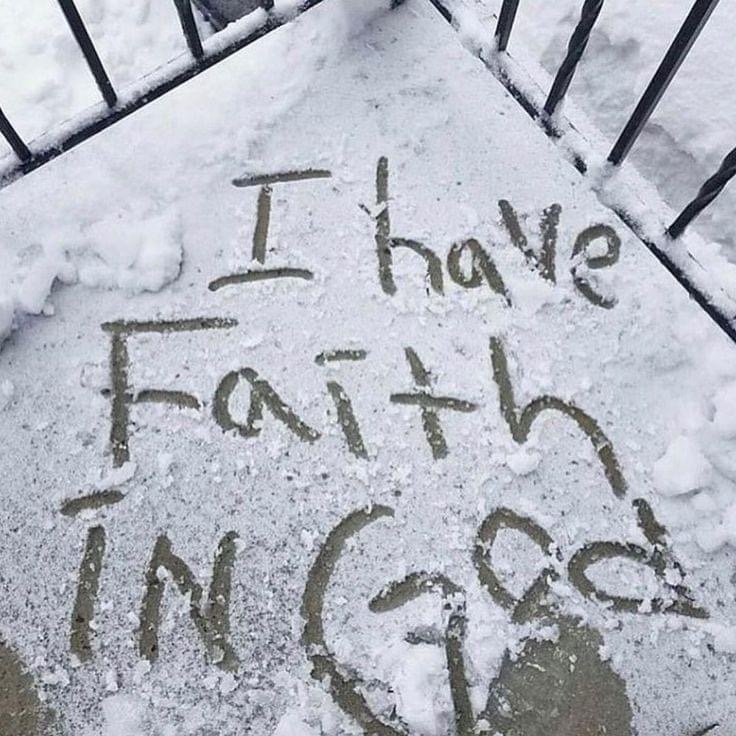 I have
Faith
iN God